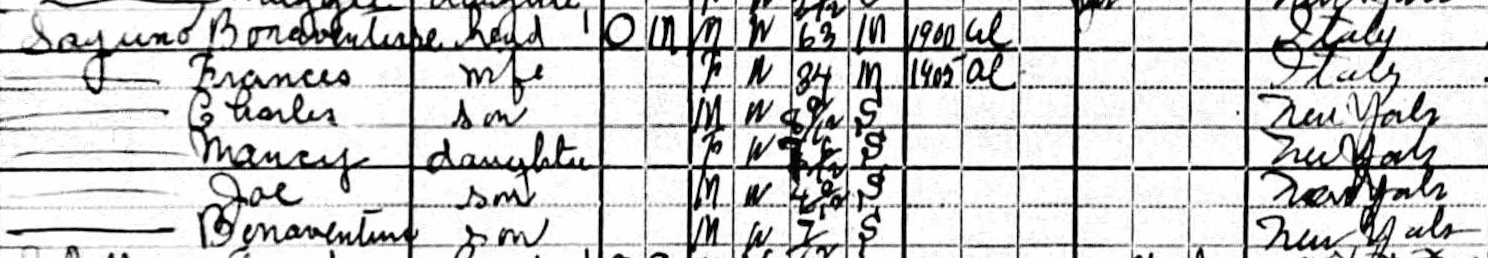 Saguno Bonaventure head 1 O M M W 63 M 1900 al Italy
Frances wife F W 34 M 1905 al Italy
Charles son M W 8 9/12 S New York
Nancy daughter F W S New York
Joe son M W 4 9/12 S New York
Bonaventure son M W 7/12 S New York